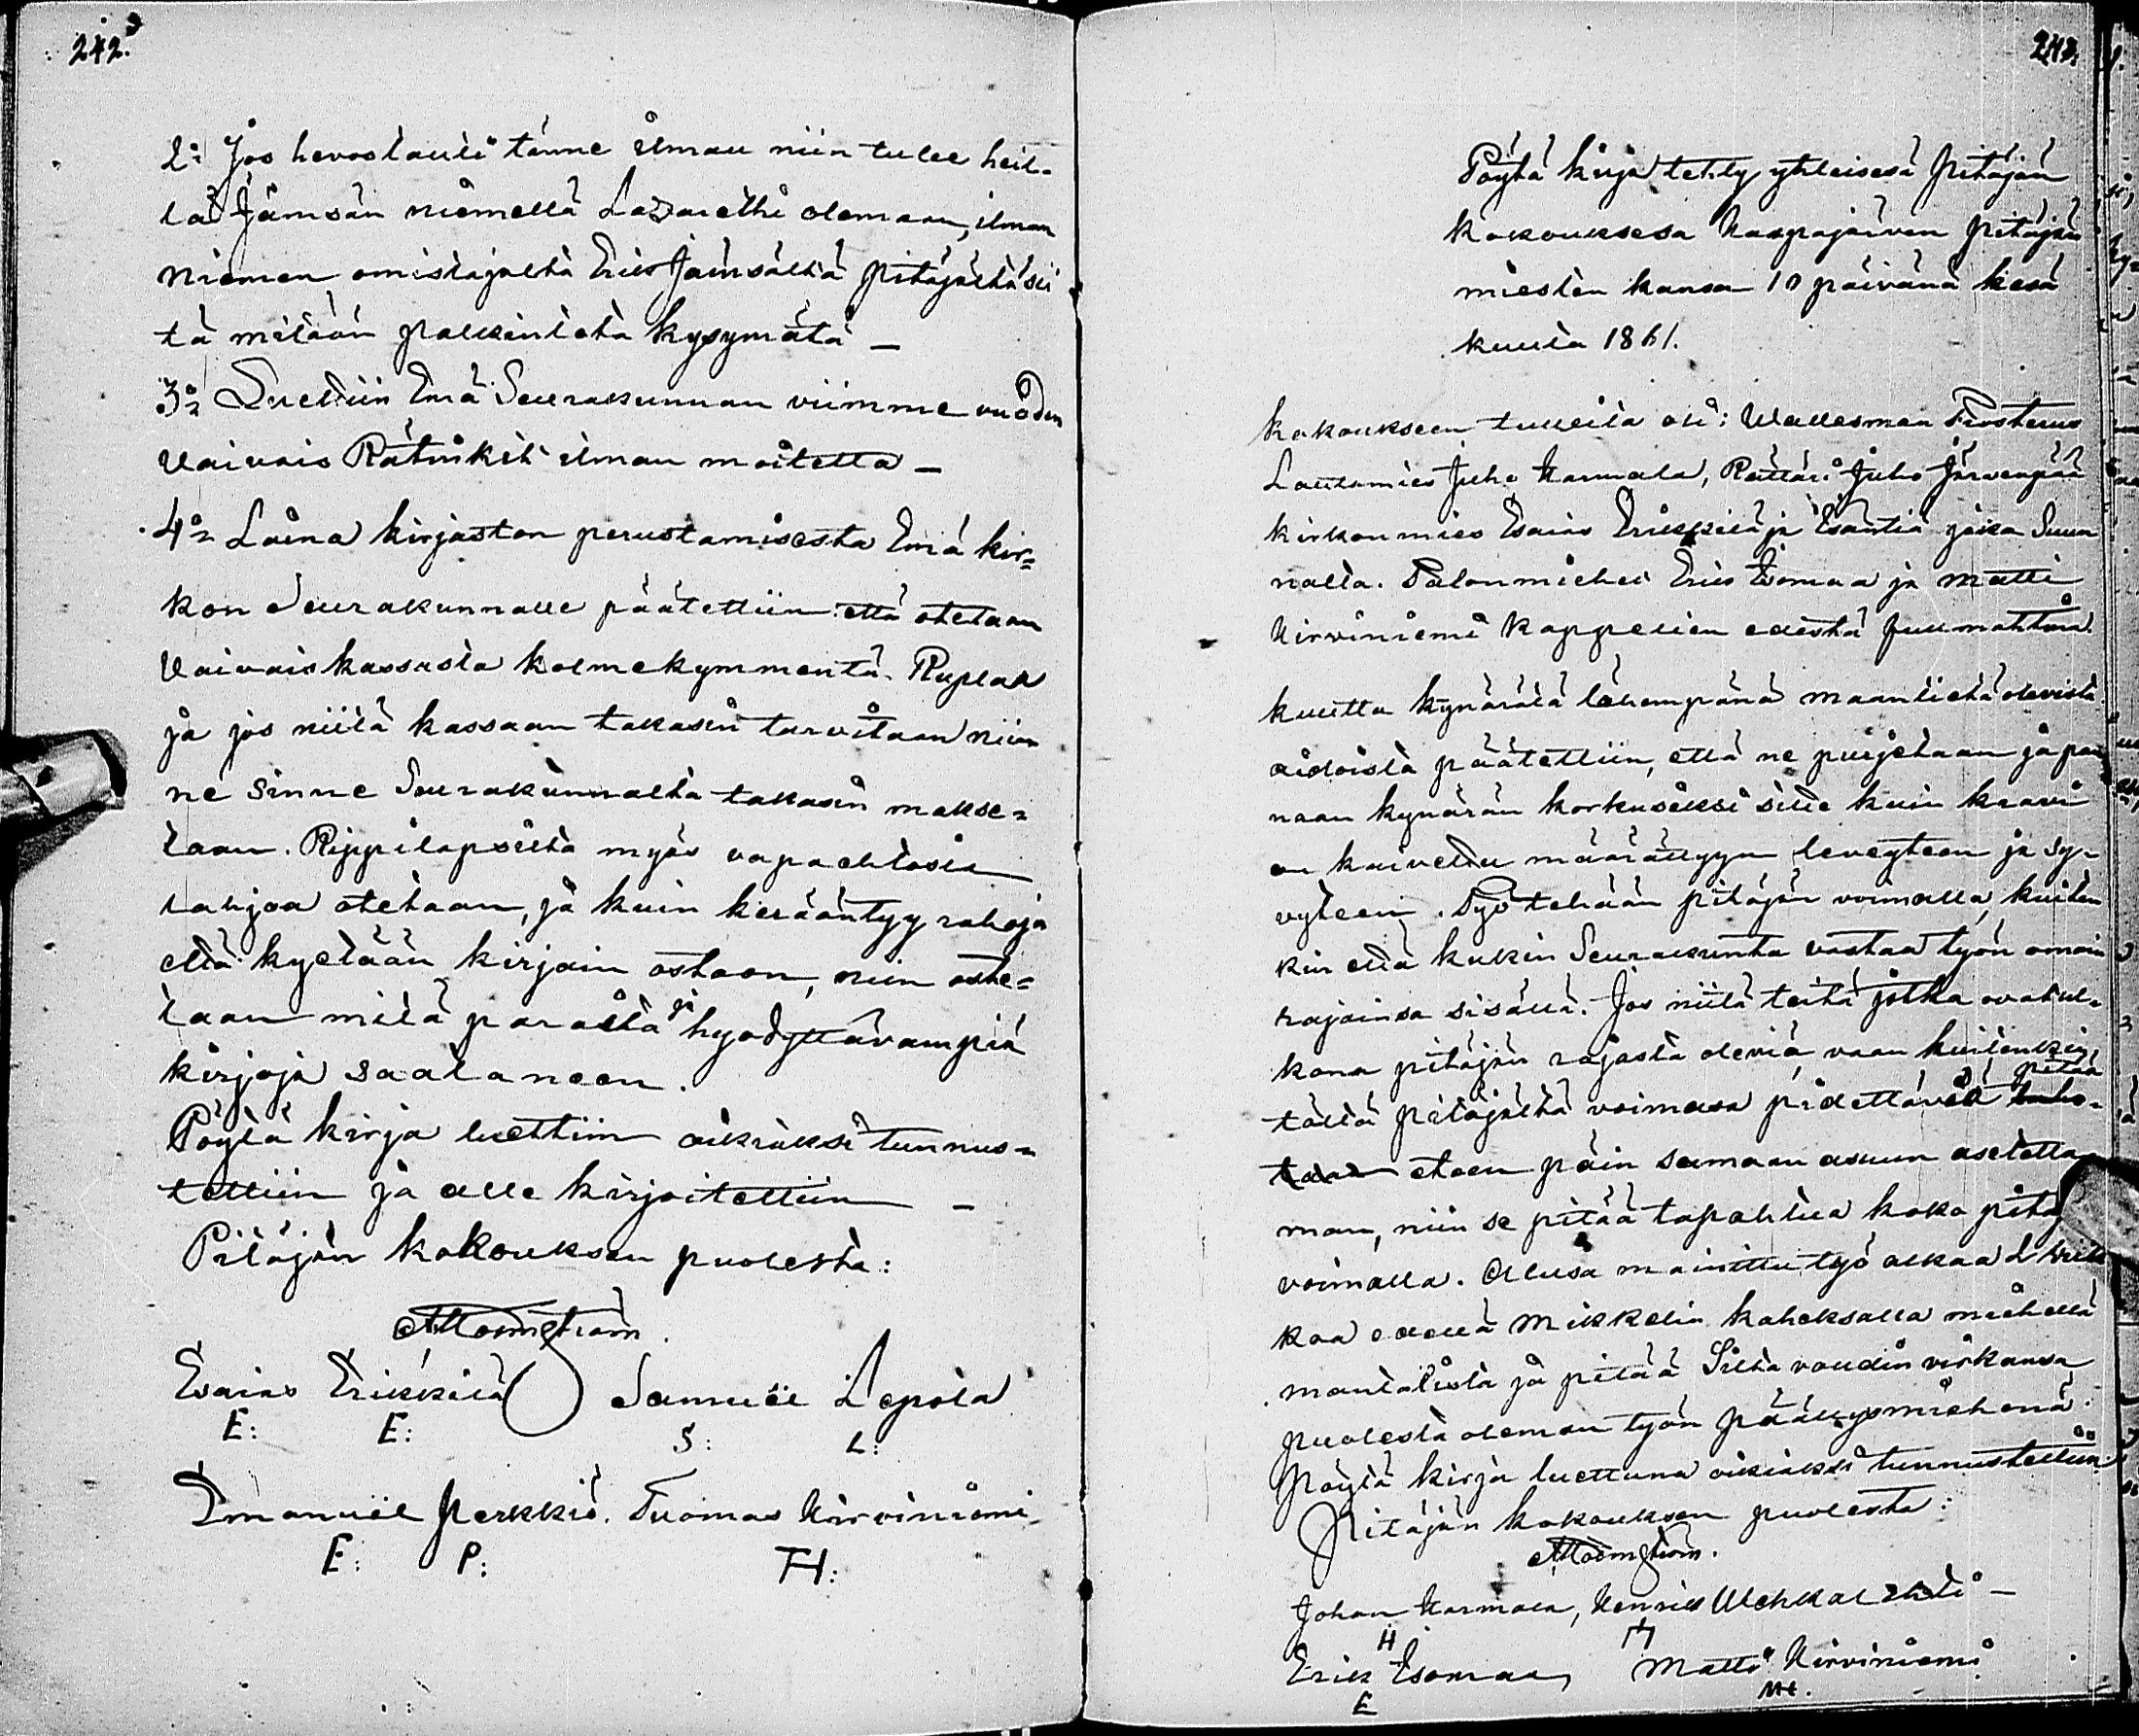 242.
2: Jos hevostauti tänne ilmau niin tulee heil-
lä Jämsän niemellä Lazarethi olemaan, ilman
niemen omistajalta Eric Jämsältä pitäjältä sii
tä mitään palkintota kysymätä –
3: Luettiin Emä Seurakunnan viimme vuoden
Vaivais Rätinkit ilman moitetta –
4: Laina kirjaston perustamisesta Emä kir=
kon Seurakunnalle päätettiin: että otetaan
Vaivais kassasta kolmekymmentä Ruplaa
ja jos niitä kassaan takasin tarvitaan niin
ne sinne Seurakunnalta takasin makse=
taan. Rippilapsilta myös vapaehtosia
lahjoa otetaan, ja kuin kerääntyy rahoja
että kyetään kirjain ostoon, niin oste=
taan mitä parasta ja hyödyttävämpiä
kirjoja saataneen.
Pöytä kirja luettiin oikiaksi tunnus=
tettiin ja alle kirjoitettiin –
Pitäjän kokouksen puolesta:
Esaias Erikkilä Samuel Lepola
E: E: S: L:
Emanuel Perkkiö. Tuomas Hirviniemi
E: P: TH:
243.
Pöytä kirja tehty yhteisesä Pitäjän
kokouksesa Haapajärven pitäjän
miesten kansa 10 päivänä kesä
kuuta 1861.
Kokoukseen tulleita oli: Wallesman Frosterus
Lautamies Juho Karmala, Rättäri Juho Järvenpää
kirkonmies Esaias Erikkilä ja Isäntiä joka Suun
nalta. Talonmiehet Eric Isomaa ja Matti
Hirviniemi Kappelien edestä
kuutta kynärätä lähempänä maantietä olevista
aidoista päätettiin, että ne purjetaan ja pan
naan kynärän korkuseksi sille kuin kraavi
on kaivettu määrättyyn leveyteen ja sy-
vyteen. Työ tehään pitäjän voimalla, kuiten
kin että kukin Seurakunta vastaa työn omain
rajainsa sisällä. Jos niitä teitä jotka ovat ul-
kona pitäjän rajasta oleviä, vaan kuitenkin
tältä pitäjältä voimasa pidettävät pitää
eteen päin samaan asuun asetetta
man, niin se pitää tapahtua koko pitä
voimalla. Allusa mainittu työ alkaa 2 viik
koa edellä Mikkelin kaheksalla miehellä
mantalista ja pitää Silta voudin virkansa
puolesta oleman työn päällysmiehenä.
Pöytä kirja luettuna oikiaksi tunnustettiin
Pitäjän kokouksen puolesta:
Johan Karmala, Henrik
H
Erick Isomaa, Matti Hirviniemi
E MH.